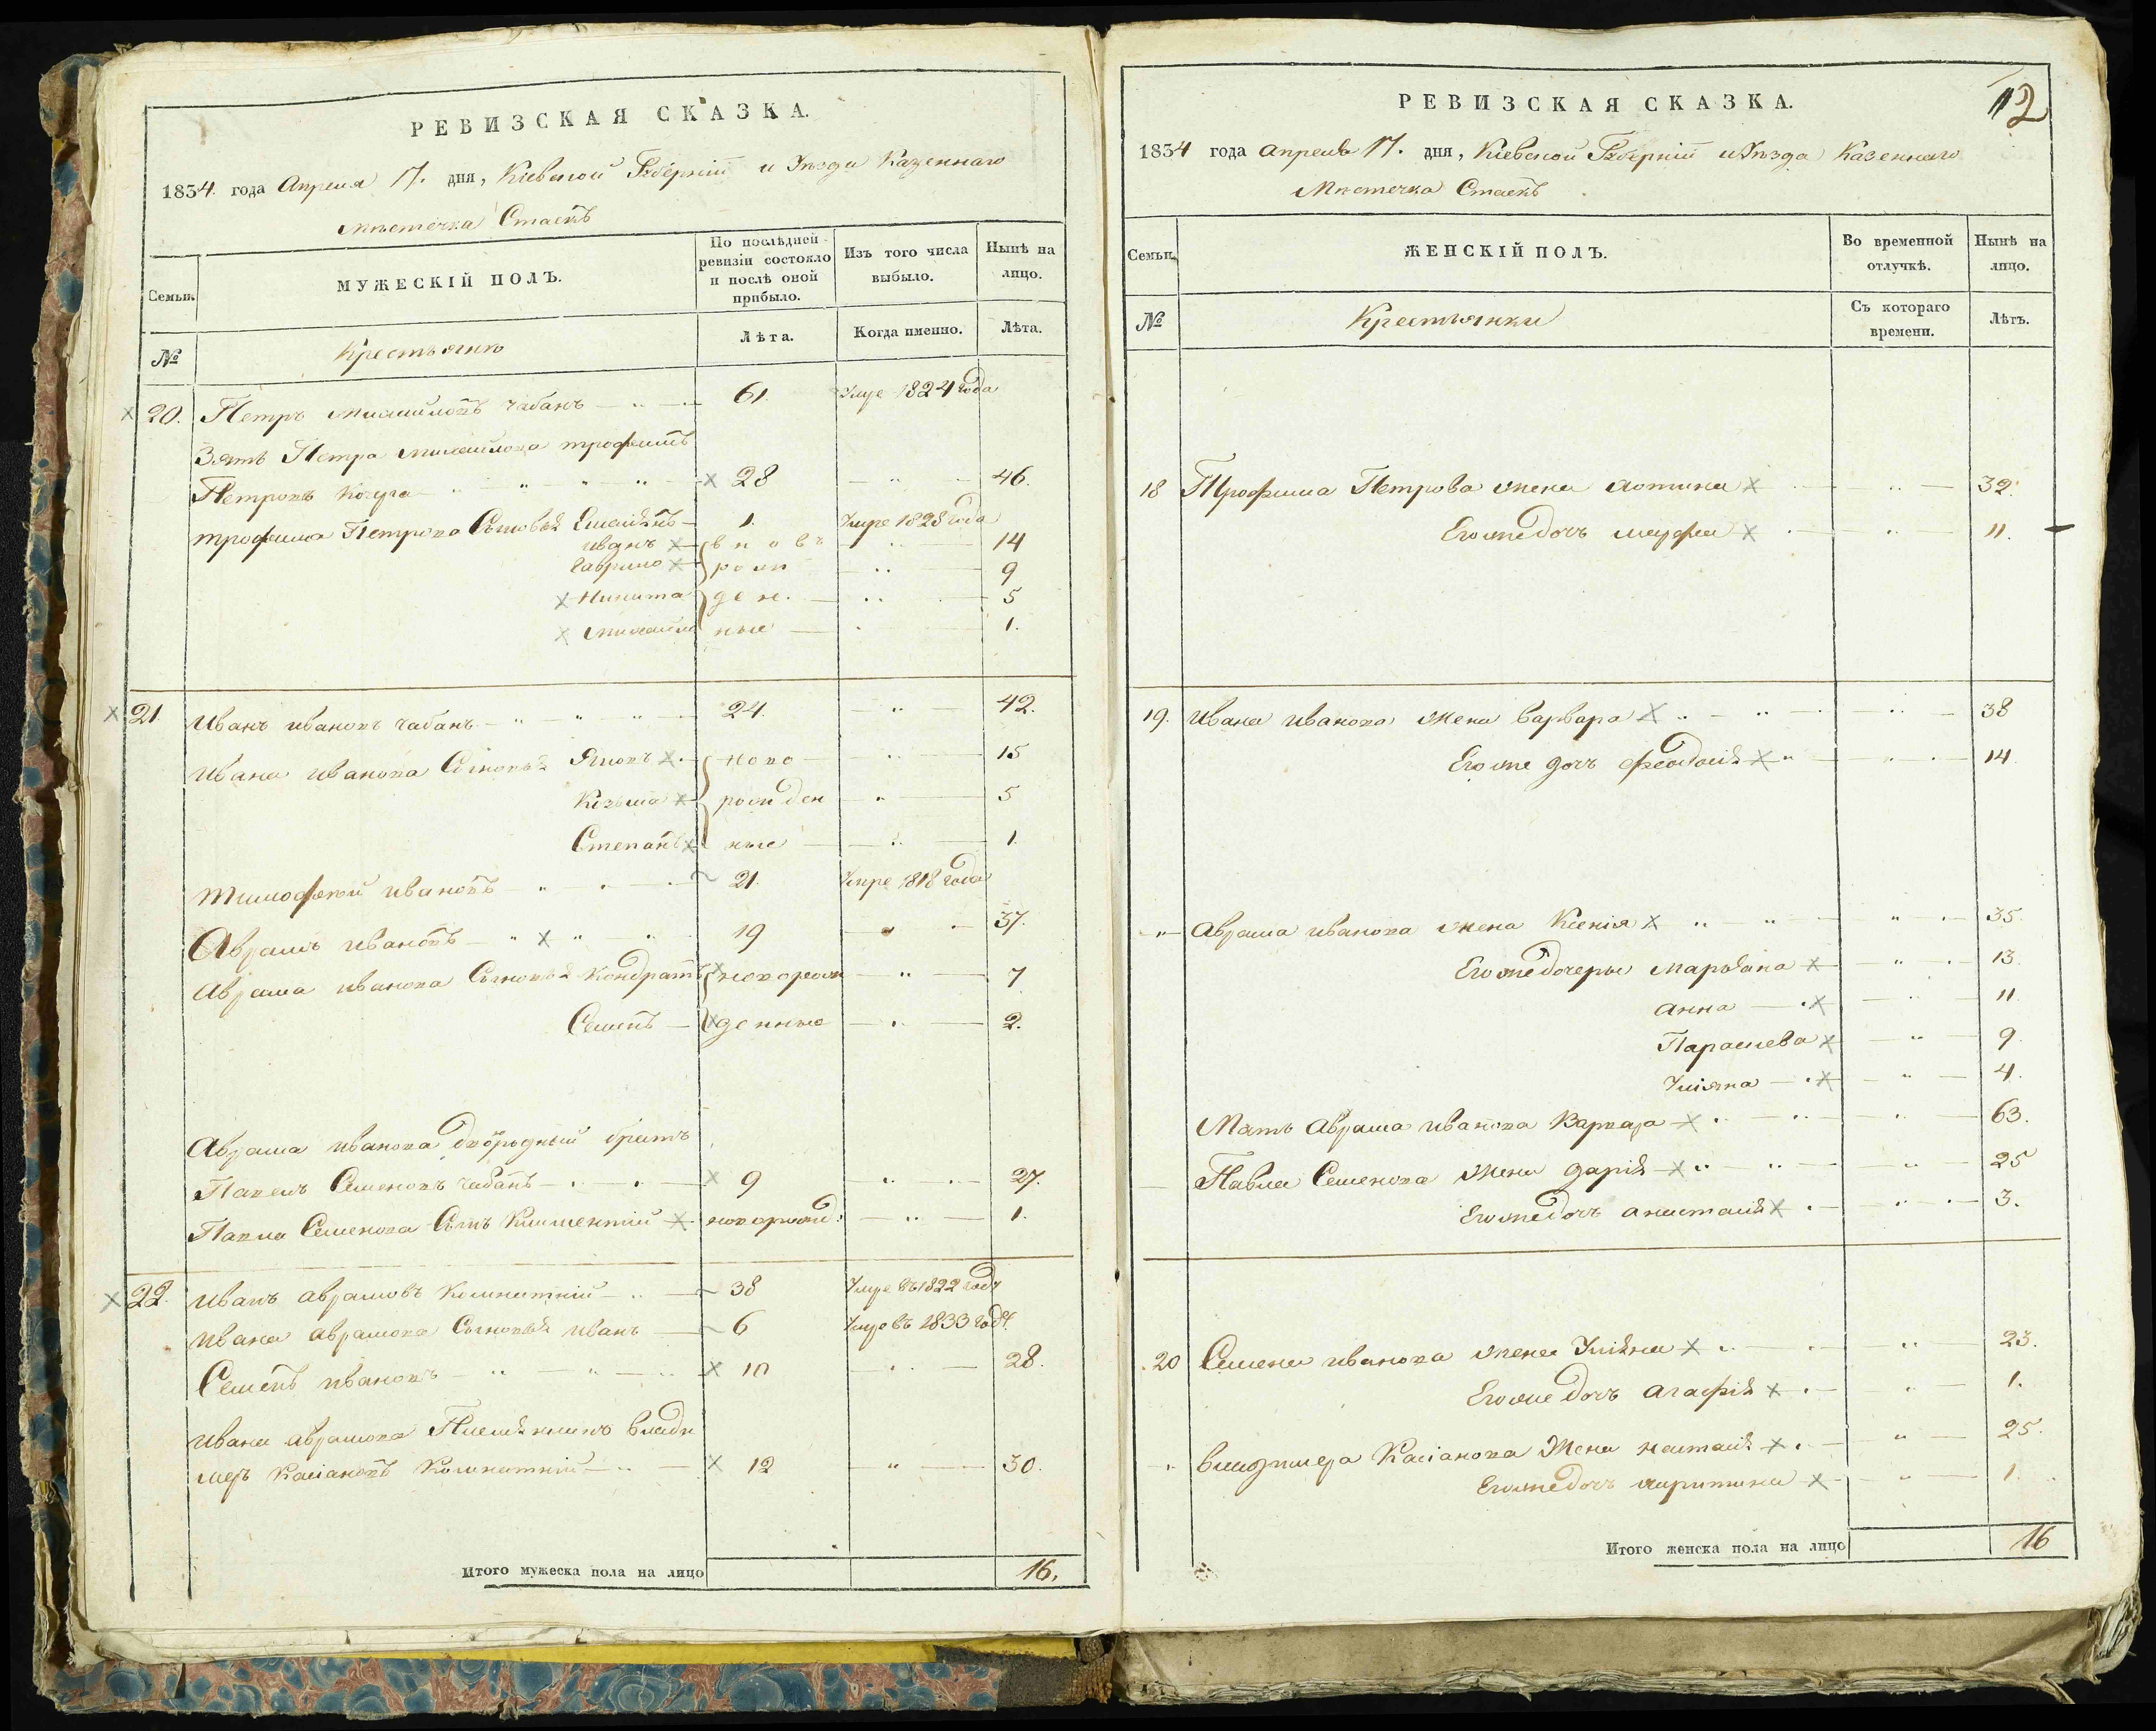 РЕВИЗСКАЯ СКАЗКА.
1834. года Апреля 17. дня, Кіевской Губерніи и Уезда Казеннаго
Местечка Стаекъ
Семьи.
МУЖЕСКІЙ ПОЛЪ.
По послѣдней ревизіи состояло и послѣ оной прибыло.
Изъ того числа выбыло.
Нынѣ на лицо.
№
Крестьянъ
Лѣта.
Когда именно.
Лѣта.
20. Петръ Михайловъ Чабанъ 61. Умре 1824 года
Зять Петра Михайлова Трофимъ
Петровъ Кочерга 28 46.
Трофима Петрова Сыновья 1. Умре 1828 года
Иванъ вновь 14
Гаврило рож 9
Никита ден. 5
Михайло ные 1.
21 Иванъ Ивановъ Чабанъ 24. 42.
Ивана Иванова Сыновья Яковъ ново 15
Козьма рожден 5
Степанъ ные 1.
Тимофей Ивановъ 21. Умре 1818 года
Аврамъ Ивановъ 19 37.
Аврама Иванова Сыновья Кондратъ новорож 7
Семенъ денные 2.
Аврама Иванова двоюродный братъ
Павелъ Семеновъ Чабанъ 9 27.
Павла Семенова Сынъ Климентій новорожд: 1.
22. Иванъ Аврамовъ 38 Умре въ 1822 году
Ивана Аврамова Сыновья Иванъ 6 Умре въ 1833 году.
Семенъ Ивановъ 10 28.
Ивана Аврамова Племянникъ Влади
меръ Касіановъ 12 30.
Итого мужеска пола на лицо 16.
12
РЕВИЗСКАЯ СКАЗКА.
1834 года Апреля 17. дня, Кіевской Губерніи и Уезда Казеннаго
Местечка Стаекъ
Семьи.
ЖЕНСКІЙ ПОЛЪ.
Во временной отлучкѣ.
Нынѣ на лицо.
№
Крестьянки
Съ котораго времени.
Лѣтъ.
18 Трофима Петрова жена 32.
Его же дочь 11.
19. Ивана Иванова жена Варвара 38
Его же дочь Феодосія 14
Аврама Иванова жена Ксенія 35.
Его же дочеры Маріяна 13.
Анна 11
Параскева 9
Уліяна 4.
Мать Аврама Иванова Варвара 63.
Павла Семенова жена Дарія 25
Его же дочь Анастасія 3.
20 Семена Иванова жена Уліяна 23.
Его же дочь Агафія 1.
Владимера Касіанова Жена Настасія 25.
Его же дочь 1.
Итого женска пола на лицо 16